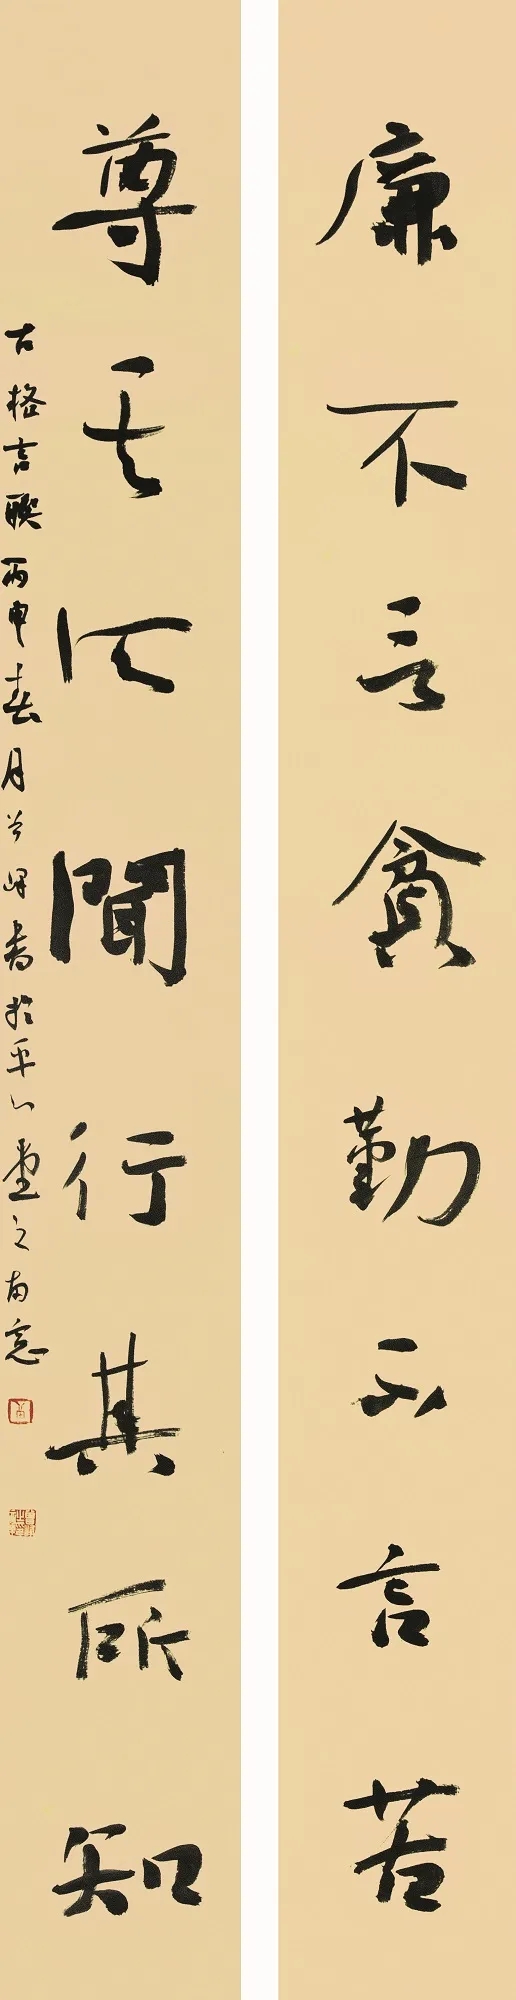 廉不言貧勤不言苦
尊其所聞行其所知
古格言聯丙申春月書於平心堂之南窗